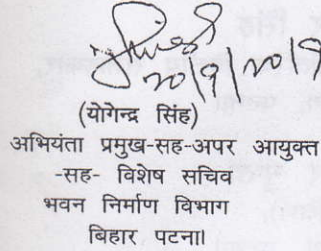 20/9/2019
(योगेन्द्र सिंह)
अभियंता प्रमुख-सह-अपर आयुक्त
-सह- विशेष सचिव
भवन निर्माण विभाग
बिहार पटना।